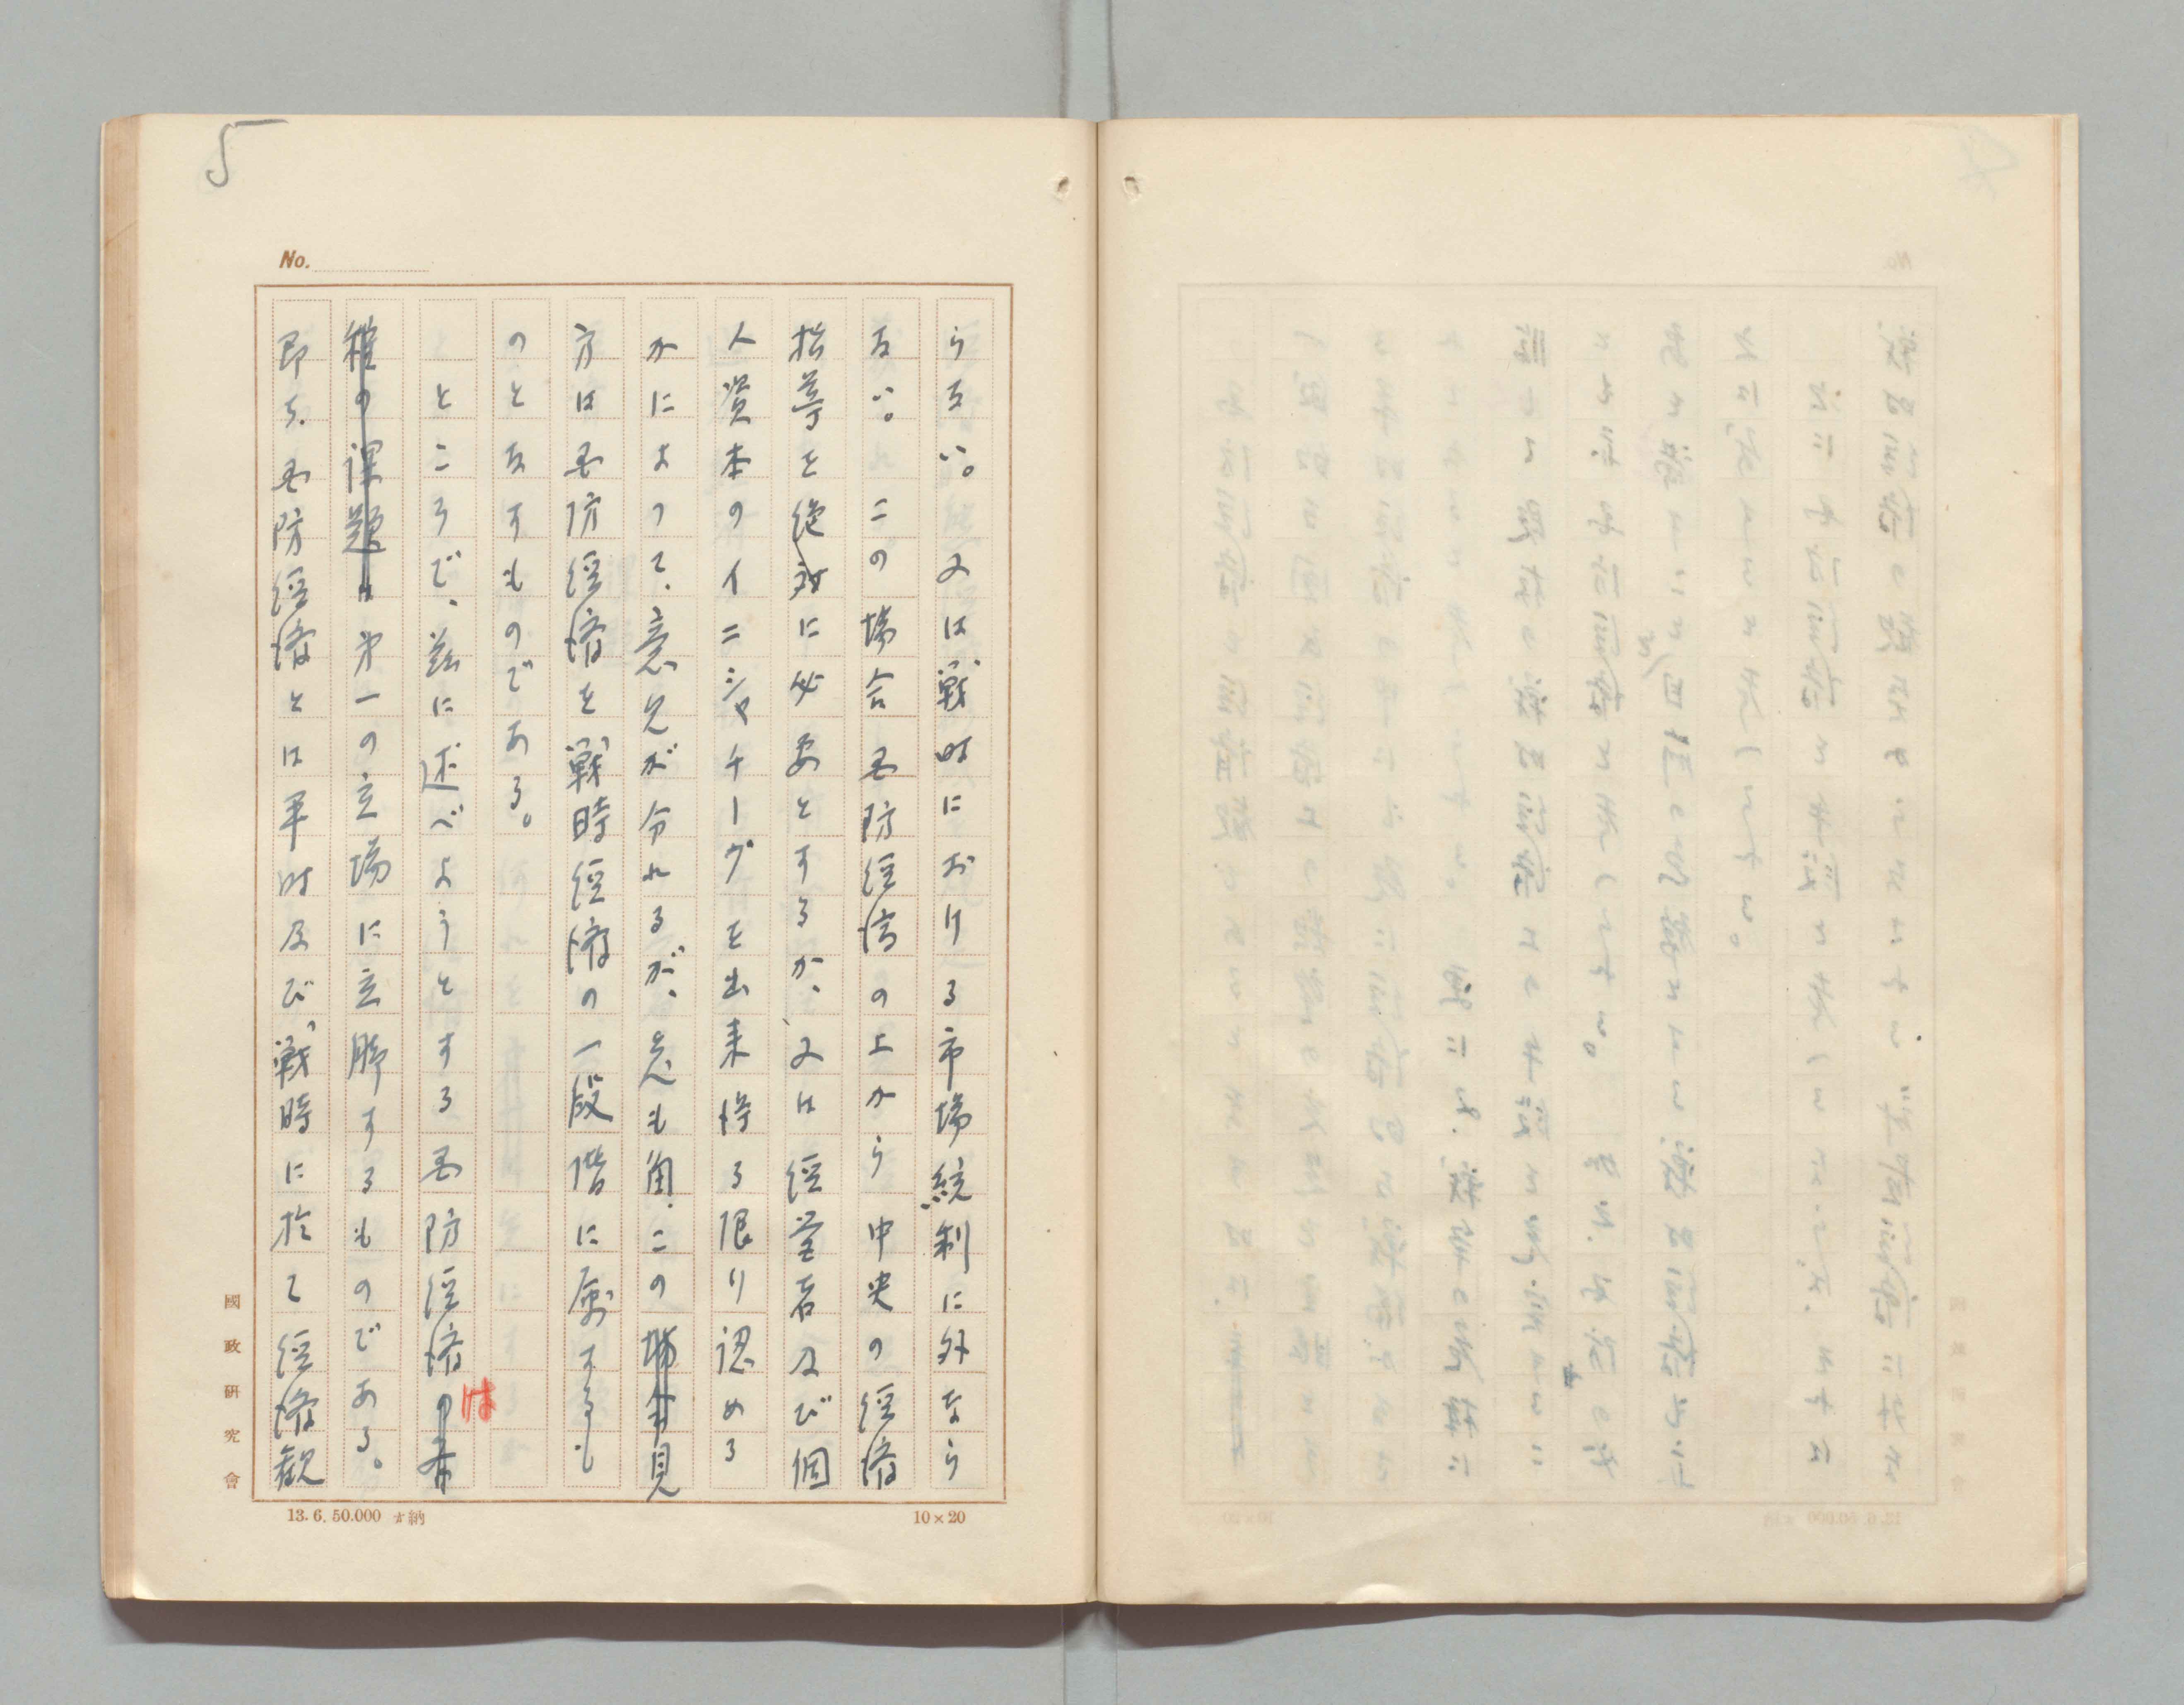 5
No.
らない。又は戦時における市場統制に外なら
ない。この場合国防経済の上から中央の経済
指導を絶対に必要とするか、又は経営者及び個
人資本のイニシャチーヴを出来得る限り認める
かによつて、意見が分れるが、兎も角、この場合見
方は国防経済を戦時経済の一段階に属するも
のとなすものである。
ところで、茲に述べようとする国防経済の は
種の課題は第一の立場に立脚するものである。
即ち、国防経済とは平時及び戦時に於て経済観
國政研究會
13. 6. 50.000 納
10×20